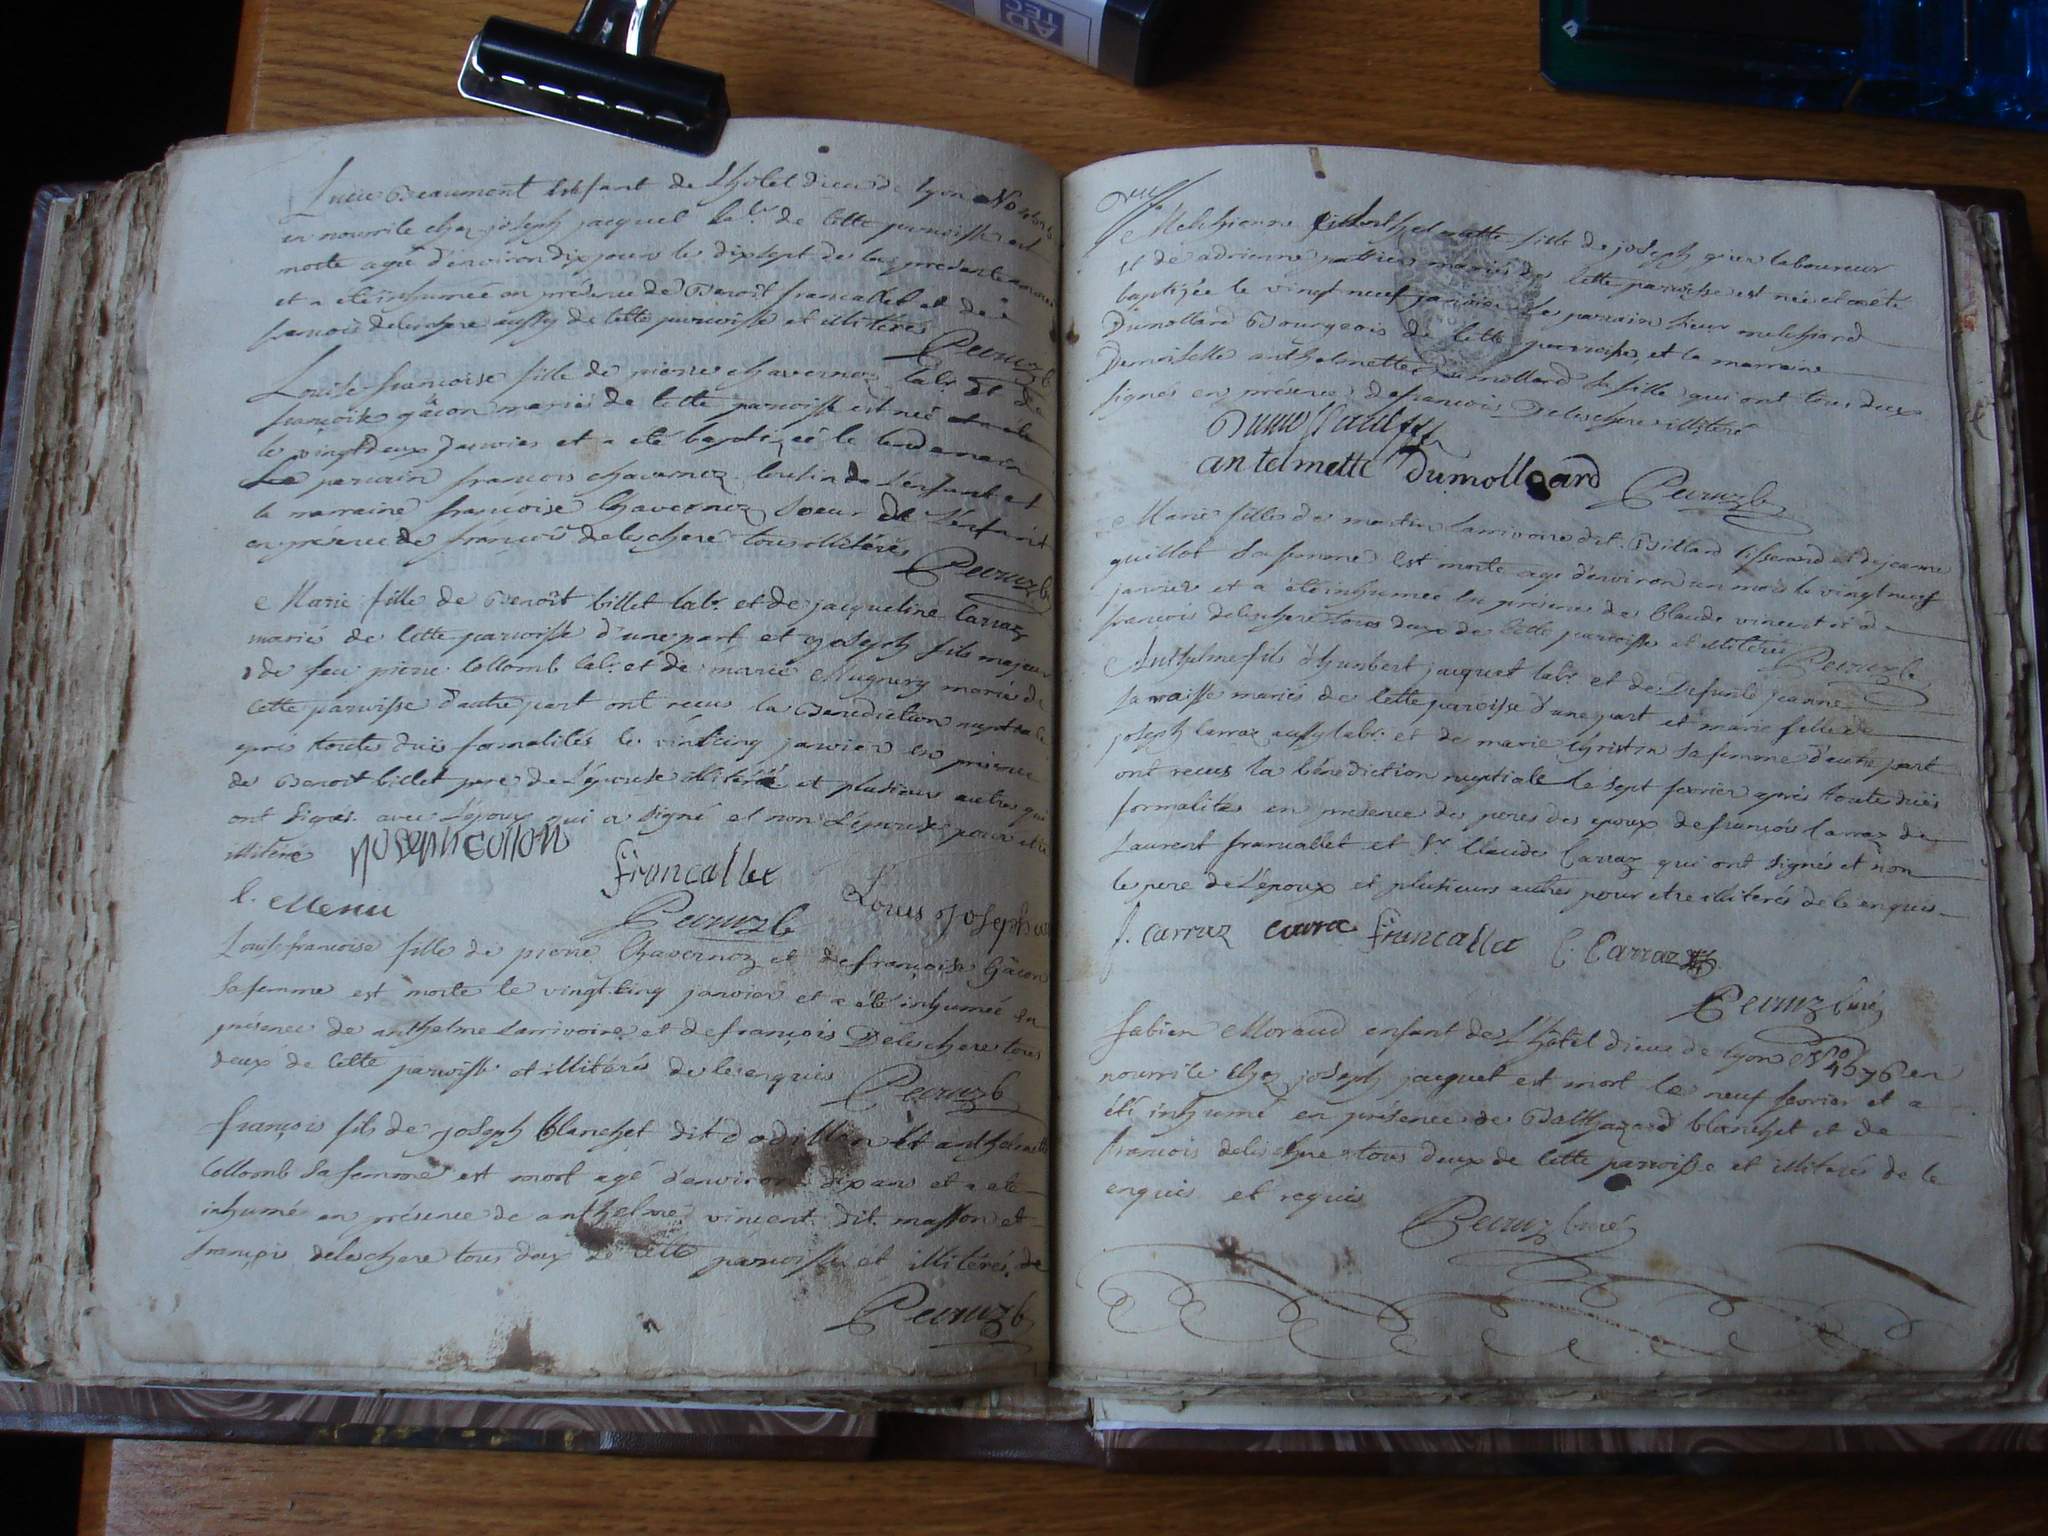 AD
TEC
Lucie Beaumont Enfant de L'hôtel dieu de lyon No
en nourrice chez joseph jacquet labr. de cette paroisse est
morte agée d'environ dix jours le dixsept de la présente année
et a eté inhumée en présence de Benoit francallet et de
françois deleschere aussy de cette paroisse et illitérés
Peyruz C
Louise françoise fille de pierre chavernoz labr. et de
françoise gâcon mariés de cette paroisse est née
le vingt deux Janvier et a eté baptizée le lendemain
Le parrain françois chavernoz cousin de L'enfant et
la marraine françoise Chavernoz soeur de L'enfant
en présence de françois deleschere tous illitérés
Peyruz C
Marie fille de Benoît billet labr. et de jacqueline Carraz
mariés de cette paroisse d'une part et joseph fils majeur
de feu pierre Collomb labr. et de marie Mugnery mariés de
cette paroisse d'autre part ont recus la Benediction nuptiale
après toutes duës formalités le vintcinq janvier en présence
de Benoit billet pere de L'épouse illitéré et plusieurs autres qui
ont signés avec L'époux qui a signé et non L'épouse pour etre
illitéré joseph collon
francallet
l. Menu
Louis joseph
Peyruz C
Louise francoise fille de pierre Chavernoz et de françoise Gâcon
sa femme est morte le vingt cinq janvier et a été inhumée en
présence de anthelme Larrivoire et de françois Deleschere tous
deux de cette paroisse et illitérés de ce enquis
Peyruz C
françois fils de joseph Blanchet dit dodillon et anthelmette
Collomb sa femme est mort agé d'environ dix ans et a eté
inhumé en présence de anthelme vincent dit masson et
françois deleschere tous deux de cette paroisse et illitérés de
Peyruz C
Melchionne anthelmette fille de joseph laboureur
et de adrienne mariés de cette paroisse est née et a eté
baptizée le vingt neuf janvier Le parrain sieur melchiord
Dumollard Bourgeois de cette paroisse et la marraine
Demoiselle anthelmette Dumollard sa fille qui ont tous deux
signés en présence de françois Deleschere illitéré
Dumollard
antelmette Dumollard Peyruz C
Marie fille de martin Larrivoire dit Billard tisserand et de jeanne
guillot sa femme est morte age d'environ un mois le vingt neuf
janvier et a eté inhumée en présence de Claude vincent et de
françois deleschere tous deux de cette paroisse et illitérés Peyruz C
Anthelme fils d'humbert jacquet labr. et de Defunte jeanne
mariés de cette paroisse d'une part et marie fille de
joseph carraz aussy labr. et de marie Christin sa femme d'autre part
ont recus la bénediction nuptiale le sept fevrier après toute duës
formalités en presence des peres des epoux de françois Carraz de
Laurent francallet et Sr. Claude Carraz qui ont signés et non
le pere de L'époux et plusieurs autres pour etre illiterés de ce enquis
J. carraz carra francallet C. Carraz
Peyruz Curé
fabien Moraud enfant de L'Hôtel dieu de lyon No 4576 en
nourrice Chez joseph jacquet est mort Le neuf fevrier et a
été inhumé en présence de Balthazard blanchet et de
françois deleschere tous deux de cette paroisse et illiterés de ce
enquis et requis
Peyruz Curé